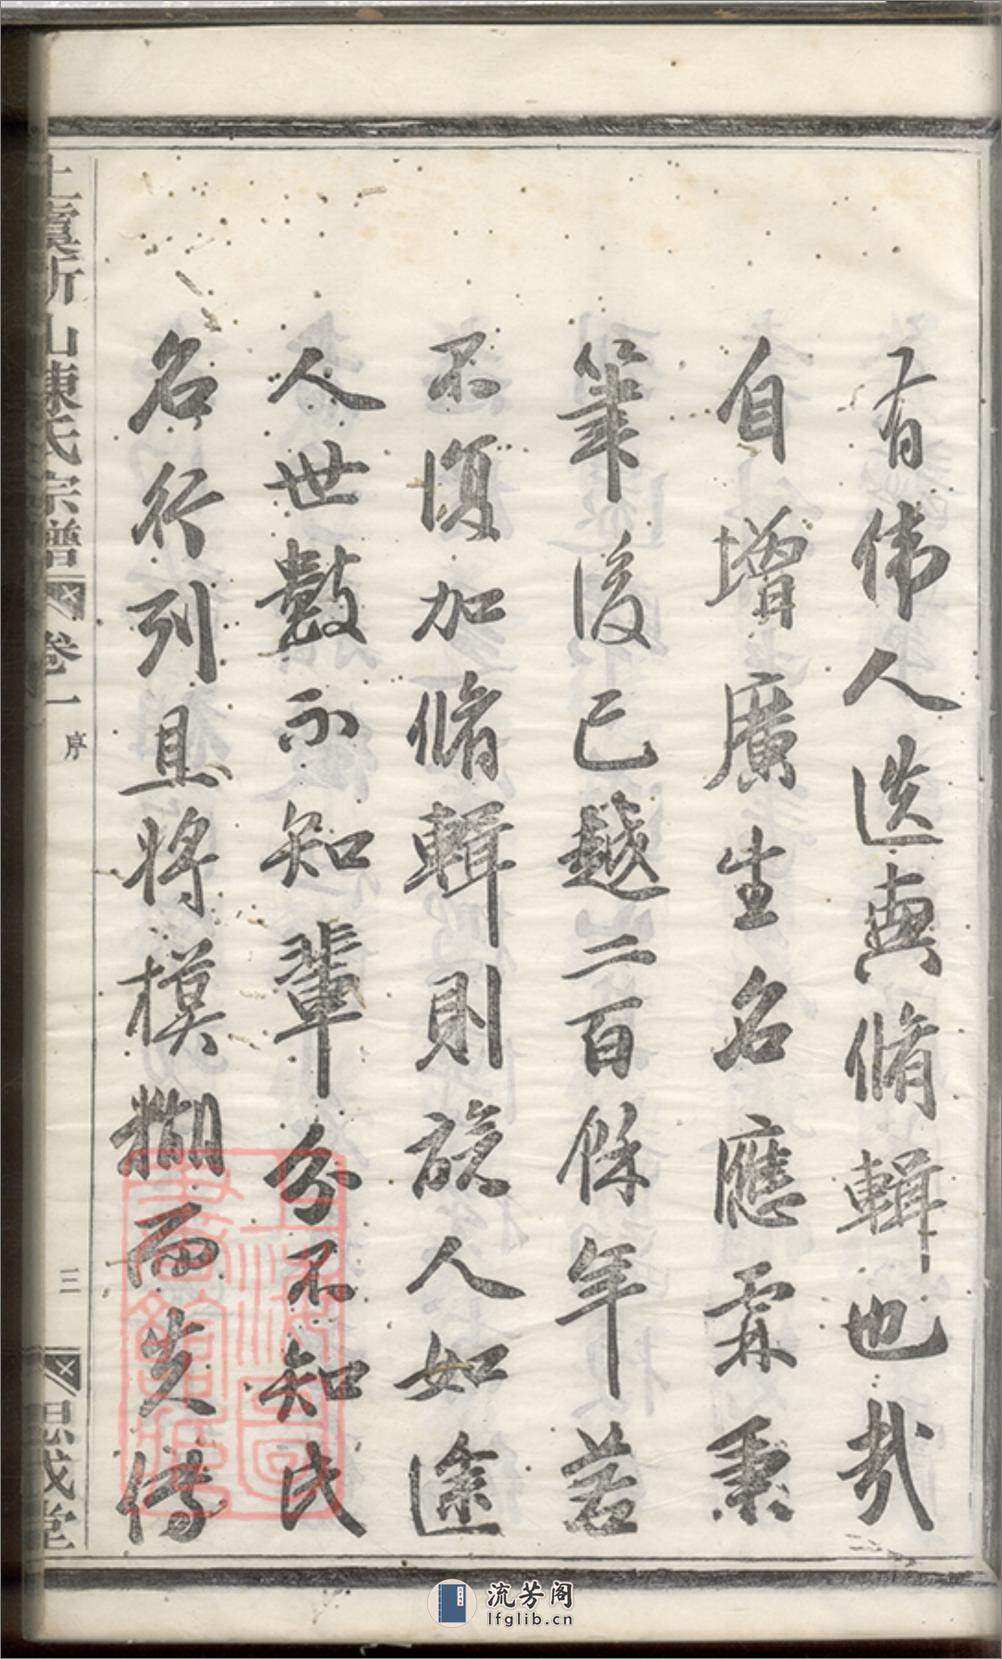 有偉人迭興脩輯也哉
自增廣生名應霖秉
筆後已越二百餘年若
不復加脩輯則族人如途
人世數不知輩分不知氏
名行列且將模糊而失傳
上虞所山陳氏宗譜 卷一 序 三 思成堂
上海圖書館藏
流芳阁
lfglib.cn